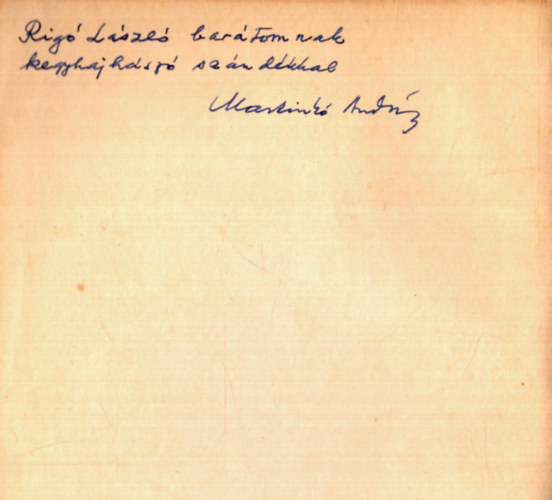 Rigó László barátomnak
kegyhajhászó szándékkal
Martinkó András